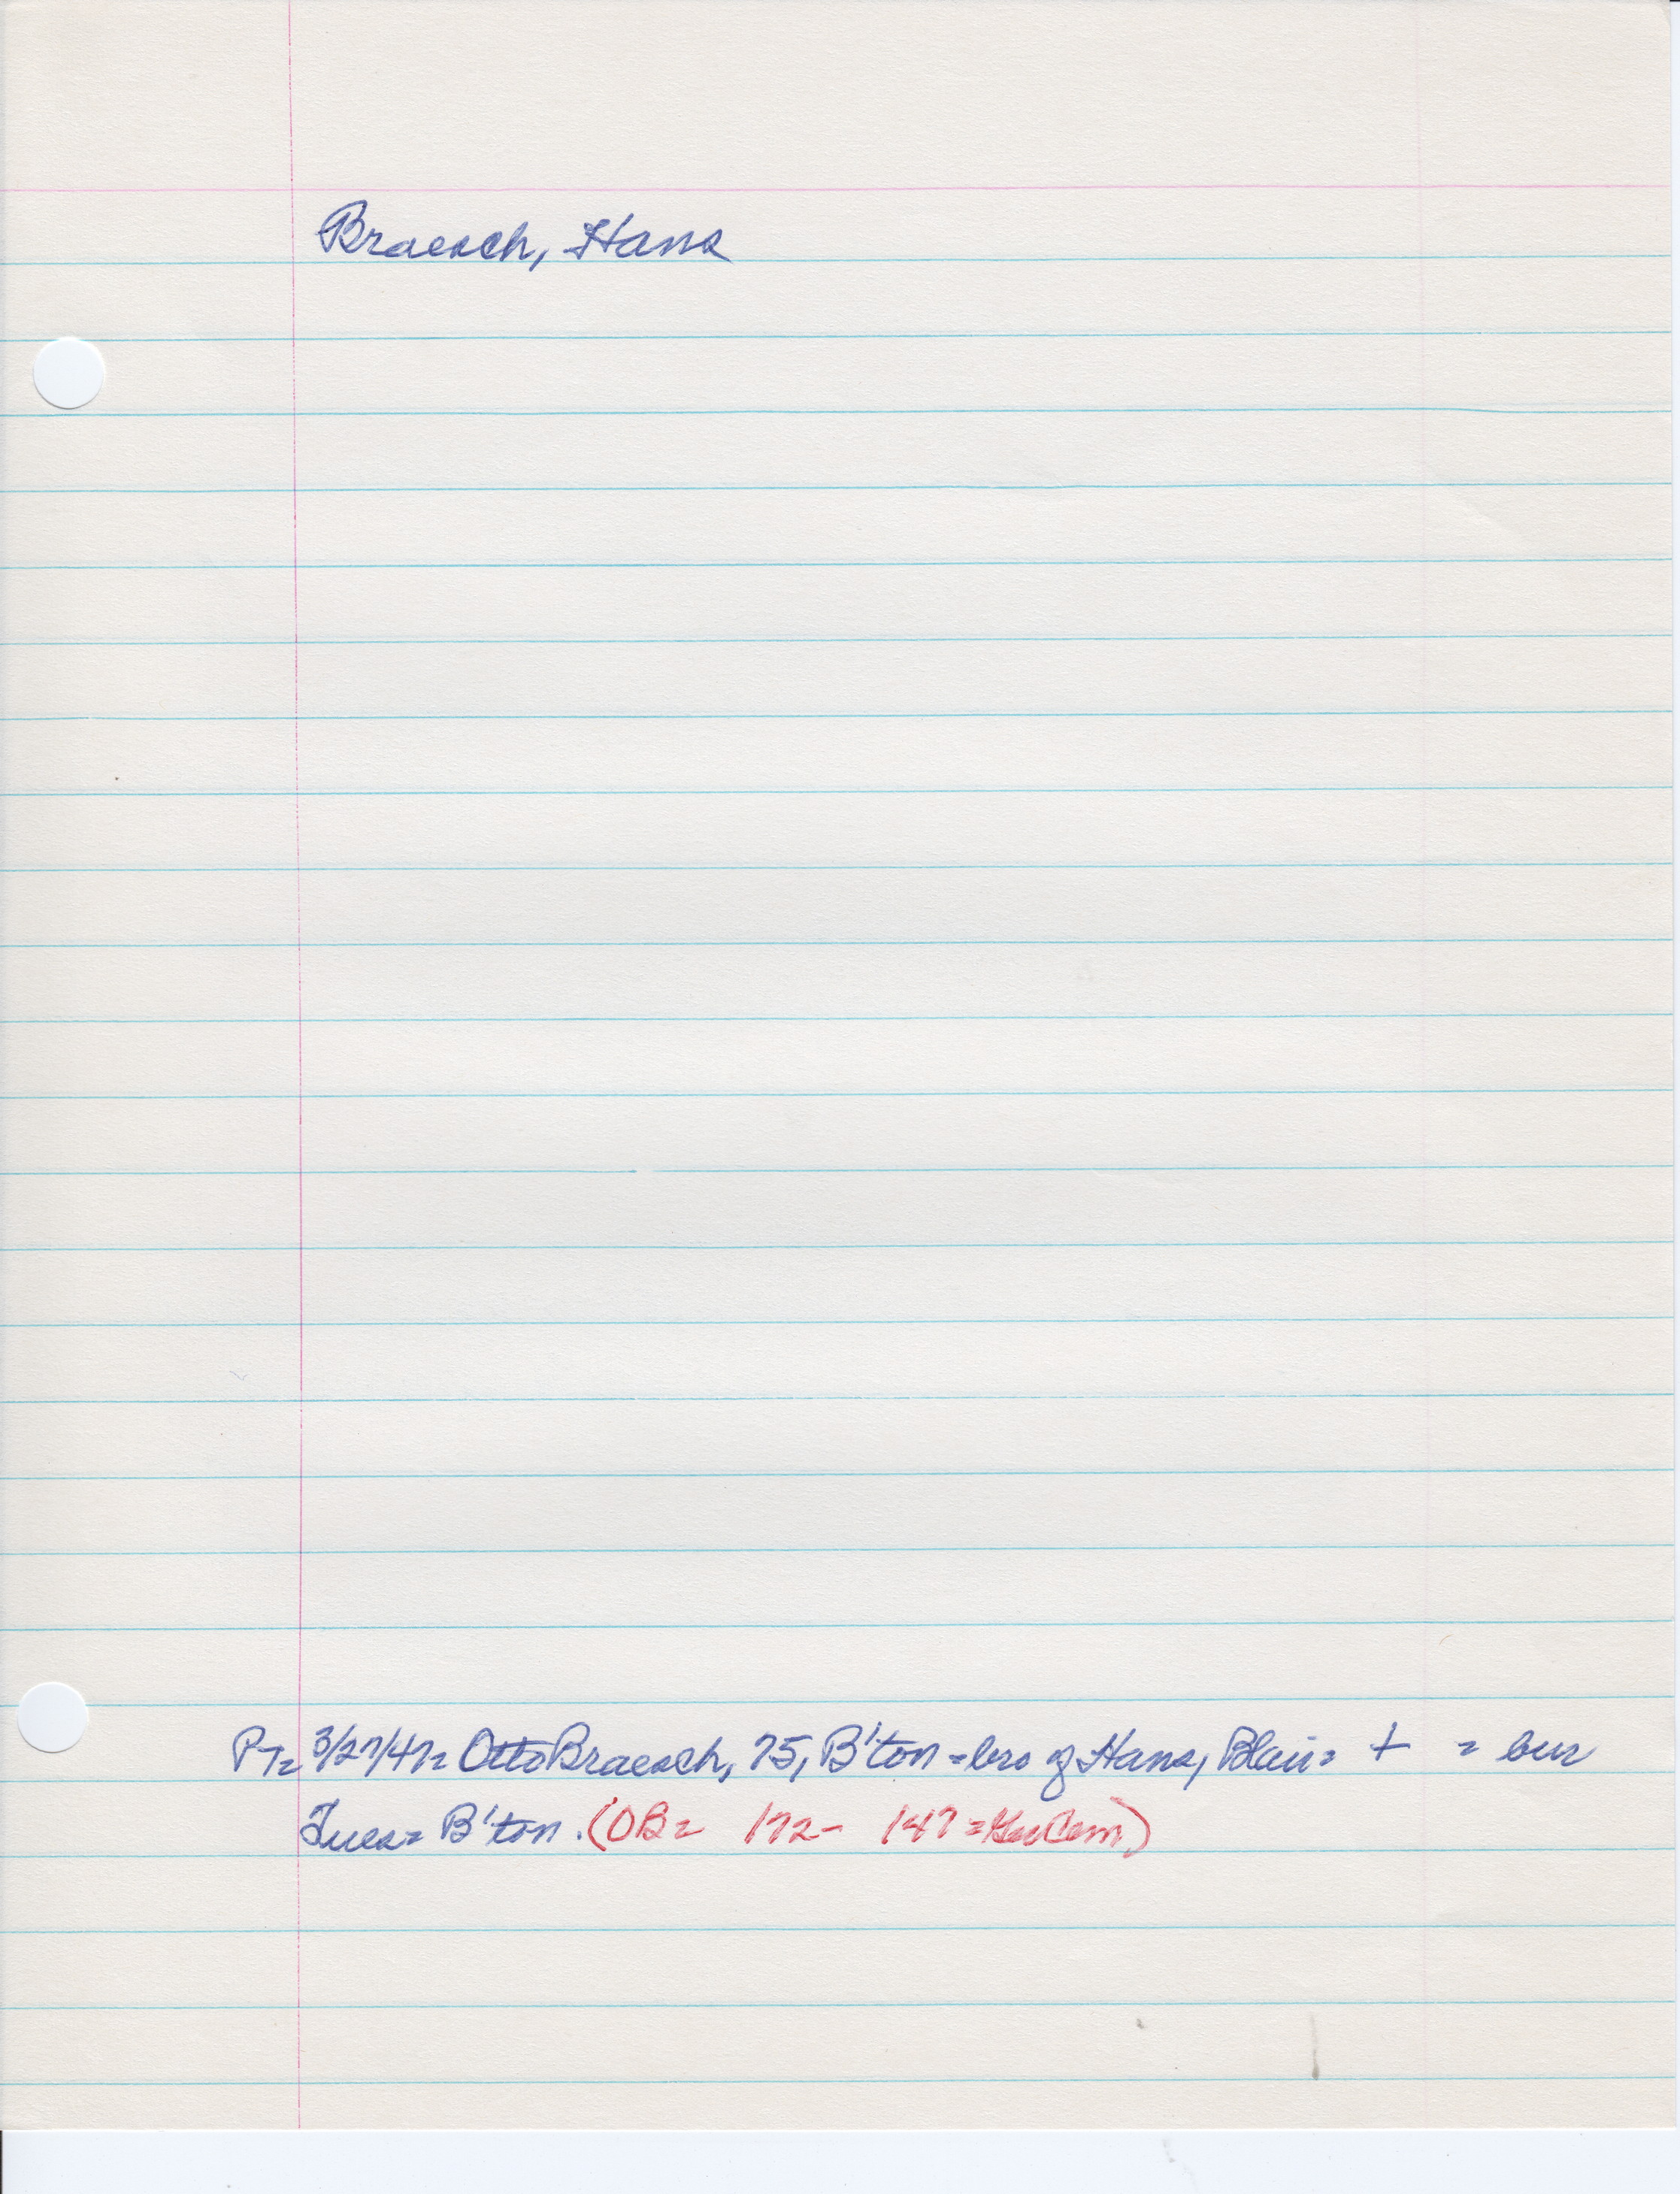 Braesch, Hans
PT= 3/27/47= Otto Braesch, 75, B'ton = bro of Hans, Blair= + = bur
Tues= B'ton. (OB= 172- 147 = Cem)